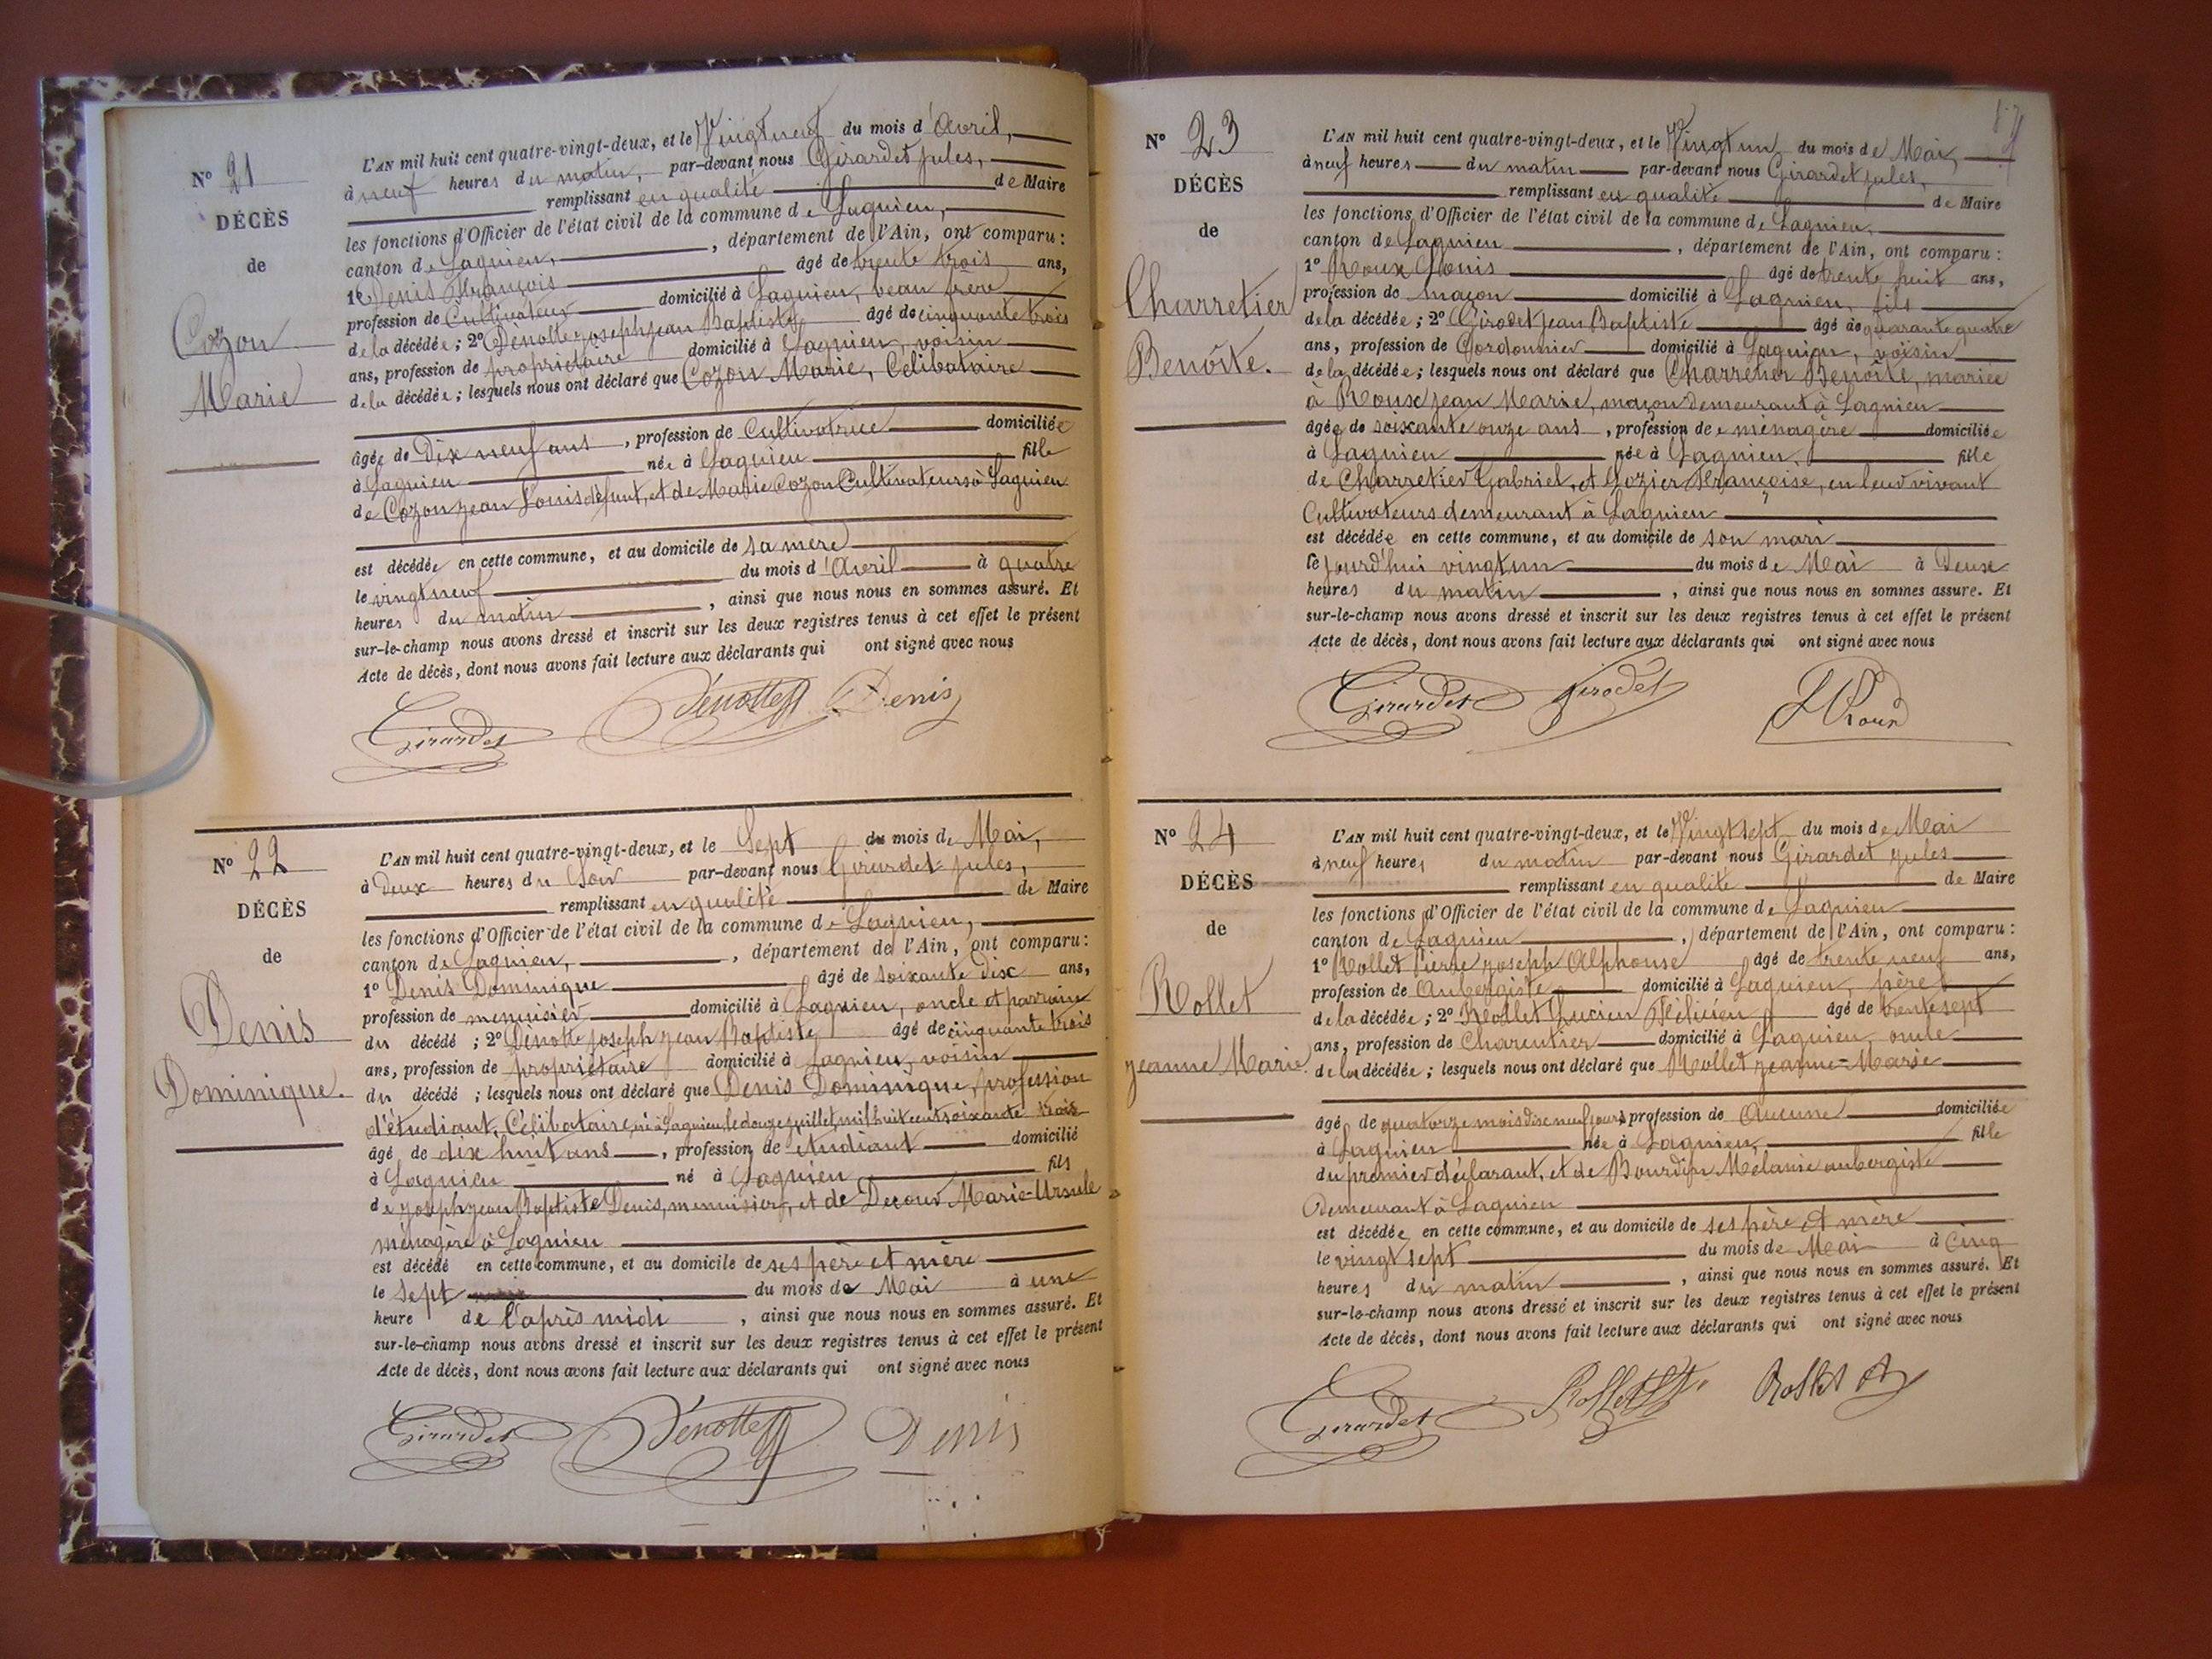 N° 21
DÉCÈS
de
Cozon
Marie
L'AN mil huit cent quatre-vingt-deux, et le Vingt neuf du mois d'Avril,
à neuf heures du matin, par-devant nous Girardet jules,
remplissant en qualité de Maire
les fonctions d'Officier de l'état civil de la commune de Lagnieu,
canton de Lagnieu, , département de l'Ain, ont comparu :
1° Denis François âgé de trente trois ans,
profession de Cultivateur domicilié à Lagnieu, beau frère
de la décédée ; 2° Dénotte joseph jean Baptiste âgé de cinquante trois
ans, profession de propriétaire domicilié à Lagnieu, voisin
de la décédée ; lesquels nous ont déclaré que Cozon Marie, Célibataire
âgée de Dix neuf ans , profession de Cultivatrice domiciliée
à Lagnieu née à Lagnieu fille
de Cozon jean Louis défunt, et de Marie Cozon Cultivateurs à Lagnieu
est décédée en cette commune, et au domicile de sa mère
le vingt neuf du mois d'Avril à quatre
heures du matin , ainsi que nous nous en sommes assuré. Et
sur-le-champ nous avons dressé et inscrit sur les deux registres tenus à cet effet le présent
Acte de décès, dont nous avons fait lecture aux déclarants qui ont signé avec nous
Girardet Dénotte Denis
N° 22
DÉCÈS
de
Denis
Dominique.
L'AN mil huit cent quatre-vingt-deux, et le Sept du mois de Mai,
à Deux heures du Soir par-devant nous Girardet jules,
remplissant en qualité de Maire
les fonctions d'Officier de l'état civil de la commune de Lagnieu,
canton de Lagnieu, , département de l'Ain, ont comparu :
1° Denis Dominique âgé de soixante dix ans,
profession de menuisier domicilié à Lagnieu, oncle et parrain
du décédé ; 2° Dénotte joseph jean Baptiste âgé de cinquante trois
ans, profession de propriétaire domicilié à Lagnieu, voisin
du décédé ; lesquels nous ont déclaré que Denis Dominique, profession
d'étudiant, Célibataire, né à Lagnieu, le douze juillet, mil huit cent soixante trois
âgé de dix huit ans , profession de étudiant domicilié
à Lagnieu né à Lagnieu fils
de joseph jean Baptiste Denis, menuisier, et de Decour Marie-Ursule
ménagère à Lagnieu
est décédé en cette commune, et au domicile de ses père et mère
le sept du mois de Mai à une
heure de l'après midi , ainsi que nous nous en sommes assuré. Et
sur-le-champ nous avons dressé et inscrit sur les deux registres tenus à cet effet le présent
Acte de décès, dont nous avons fait lecture aux déclarants qui ont signé avec nous
Girardet Dénotte Denis
N° 23
DÉCÈS
de
Charretier
Benoîte.
L'AN mil huit cent quatre-vingt-deux, et le Vingt un du mois de Mai,
à neuf heures du matin par-devant nous Girardet jules,
remplissant en qualité de Maire
les fonctions d'Officier de l'état civil de la commune de Lagnieu,
canton de Lagnieu , département de l'Ain, ont comparu :
1° Roux Louis âgé de trente huit ans,
profession de maçon domicilié à Lagnieu, fils
de la décédée ; 2° Girodet jean Baptiste âgé de quarante quatre
ans, profession de Cordonnier domicilié à Lagnieu, voisin
de la décédée ; lesquels nous ont déclaré que Charretier Benoîte, mariée
à Roux jean Marie, maçon demeurant à Lagnieu
âgée de soixante onze ans , profession de ménagère domiciliée
à Lagnieu née à Lagnieu, fille
de Charretier Gabriel, et Gozier Françoise, en leur vivant
Cultivateurs demeurant à Lagnieu
est décédée en cette commune, et au domicile de son mari
le jourd'hui vingt un du mois de Mai à Deux
heures du matin , ainsi que nous nous en sommes assuré. Et
sur-le-champ nous avons dressé et inscrit sur les deux registres tenus à cet effet le présent
Acte de décès, dont nous avons fait lecture aux déclarants qui ont signé avec nous
Girardet Girodet L Roux
N° 24
DÉCÈS
de
Rollet
jeanne Marie.
L'AN mil huit cent quatre-vingt-deux, et le Vingt sept du mois de Mai
à neuf heures du matin par-devant nous Girardet jules
remplissant en qualité de Maire
les fonctions d'Officier de l'état civil de la commune de Lagnieu
canton de Lagnieu , département de l'Ain, ont comparu :
1° Rollet Pierre joseph Alphonse âgé de trente neuf ans,
profession de Aubergiste domicilié à Lagnieu, père
de la décédée ; 2° Rollet Lucien Félicien âgé de trente sept
ans, profession de Charentier domicilié à Lagnieu, oncle
de la décédée ; lesquels nous ont déclaré que Rollet jeanne-Marie
âgé de quatorze mois dix neuf jours profession de Aucune domiciliée
à Lagnieu née à Lagnieu, fille
du premier déclarant, et de Bourdin Mélanie aubergiste
Demeurant à Lagnieu
est décédée en cette commune, et au domicile de ses père et mère
le vingt sept du mois de Mai à Cinq
heures du matin , ainsi que nous nous en sommes assuré. Et
sur-le-champ nous avons dressé et inscrit sur les deux registres tenus à cet effet le présent
Acte de décès, dont nous avons fait lecture aux déclarants qui ont signé avec nous
Girardet Rollet Rollet A